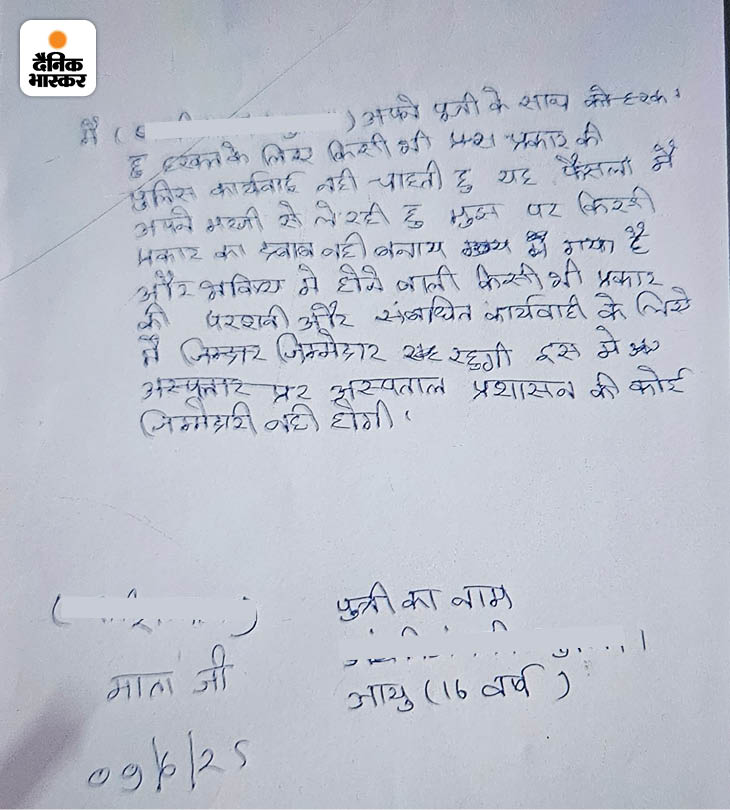 दैनिक
भास्कर
मैं ( ) अपने पुत्री के साथ
हु इसके लिए किसी भी प्रकार की
पुलिस कार्यवाई नही चाहती हु यह फैसला मैं
अपने मरजी से ले रही हु मुझ पर किसी
प्रकार का दबाव नही बनाय गया है
और भविष्य मे होने वाली किसी भी प्रकार
की परशानी और संबाधित कार्यवाही के लिये
मैं जिम्मेदार रहुगी इस मे
अस्पताल प्रशासन की कोई
जिम्मेदारी नही होगी।
( ) पुत्री का नाम
माता जी आयु (16 वर्ष)
09/6/25